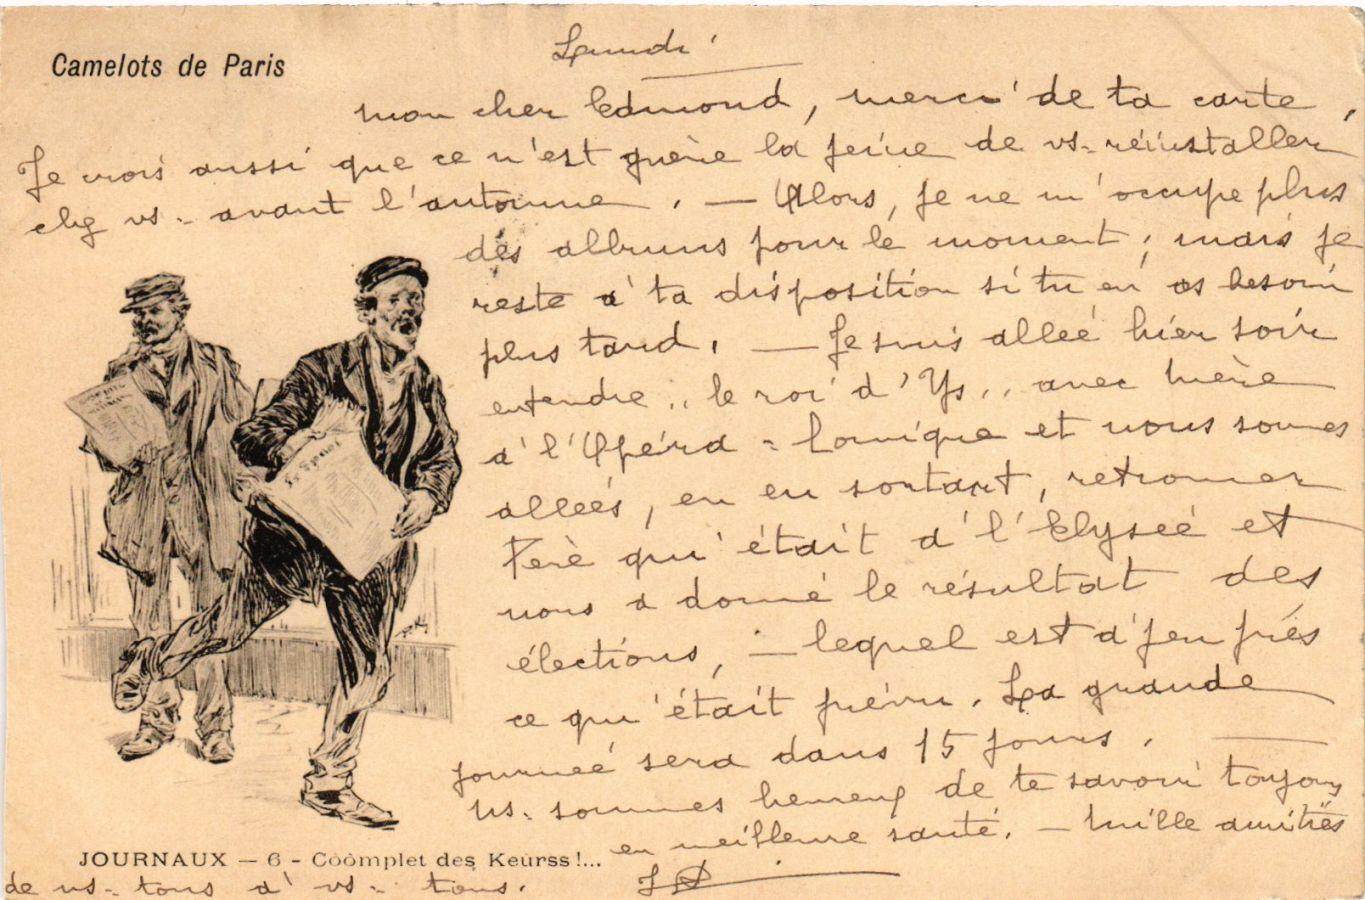 Camelots de Paris
Lundi
mon cher Edmond, merci de ta carte,
Je crois aussi que ce n'est guère la peine de vs. réinstaller
chez vs. avant l'automne. — Alors, je ne m'occupe plus
des albums pour le moment, mais je
reste à ta disposition si tu en as besoin
plus tard. — Je suis allée hier soir
entendre "le roi d'Ys" avec mère
à l'Opéra-Comique et nous sommes
allées, en en sortant, retrouver
Père qu'était à l'Elysée et
nous a donné le résultat des
élections, — lequel est à peu près
ce qu'était prévu. La grande
journée sera dans 15 jours. —
ns. sommes heureux de te savoir toujours
en meilleure santé. — Mille amitiés
JOURNAUX — 6 - Coômplet des Keurss!...
de ns. tous à vs. tous.